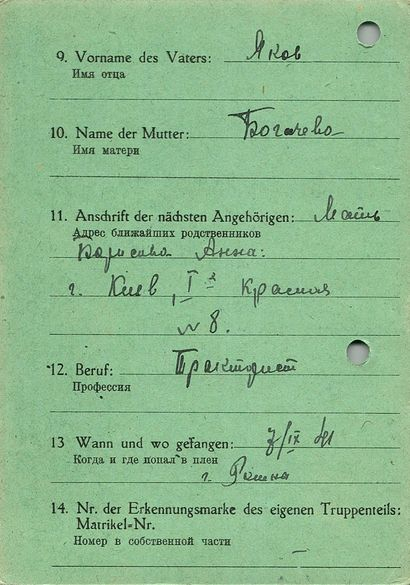 9. Vorname des Vaters: Яков
Имя отца
10. Name der Mutter: Богачева
Имя матери
11. Anschrift der nächsten Angehörigen: Мать
Адрес ближайших родственников
Борисова Анна:
г. Киев, I я Красная
№ 8.
12. Beruf: Тракторист
Профессия
13 Wann und wo gefangen: 7/IX 41
Когда и где попал в плен
г.
14. Nr. der Erkennungsmarke des eigenen Truppenteils:
Matrikel=Nr.
Номер в собственной части
–